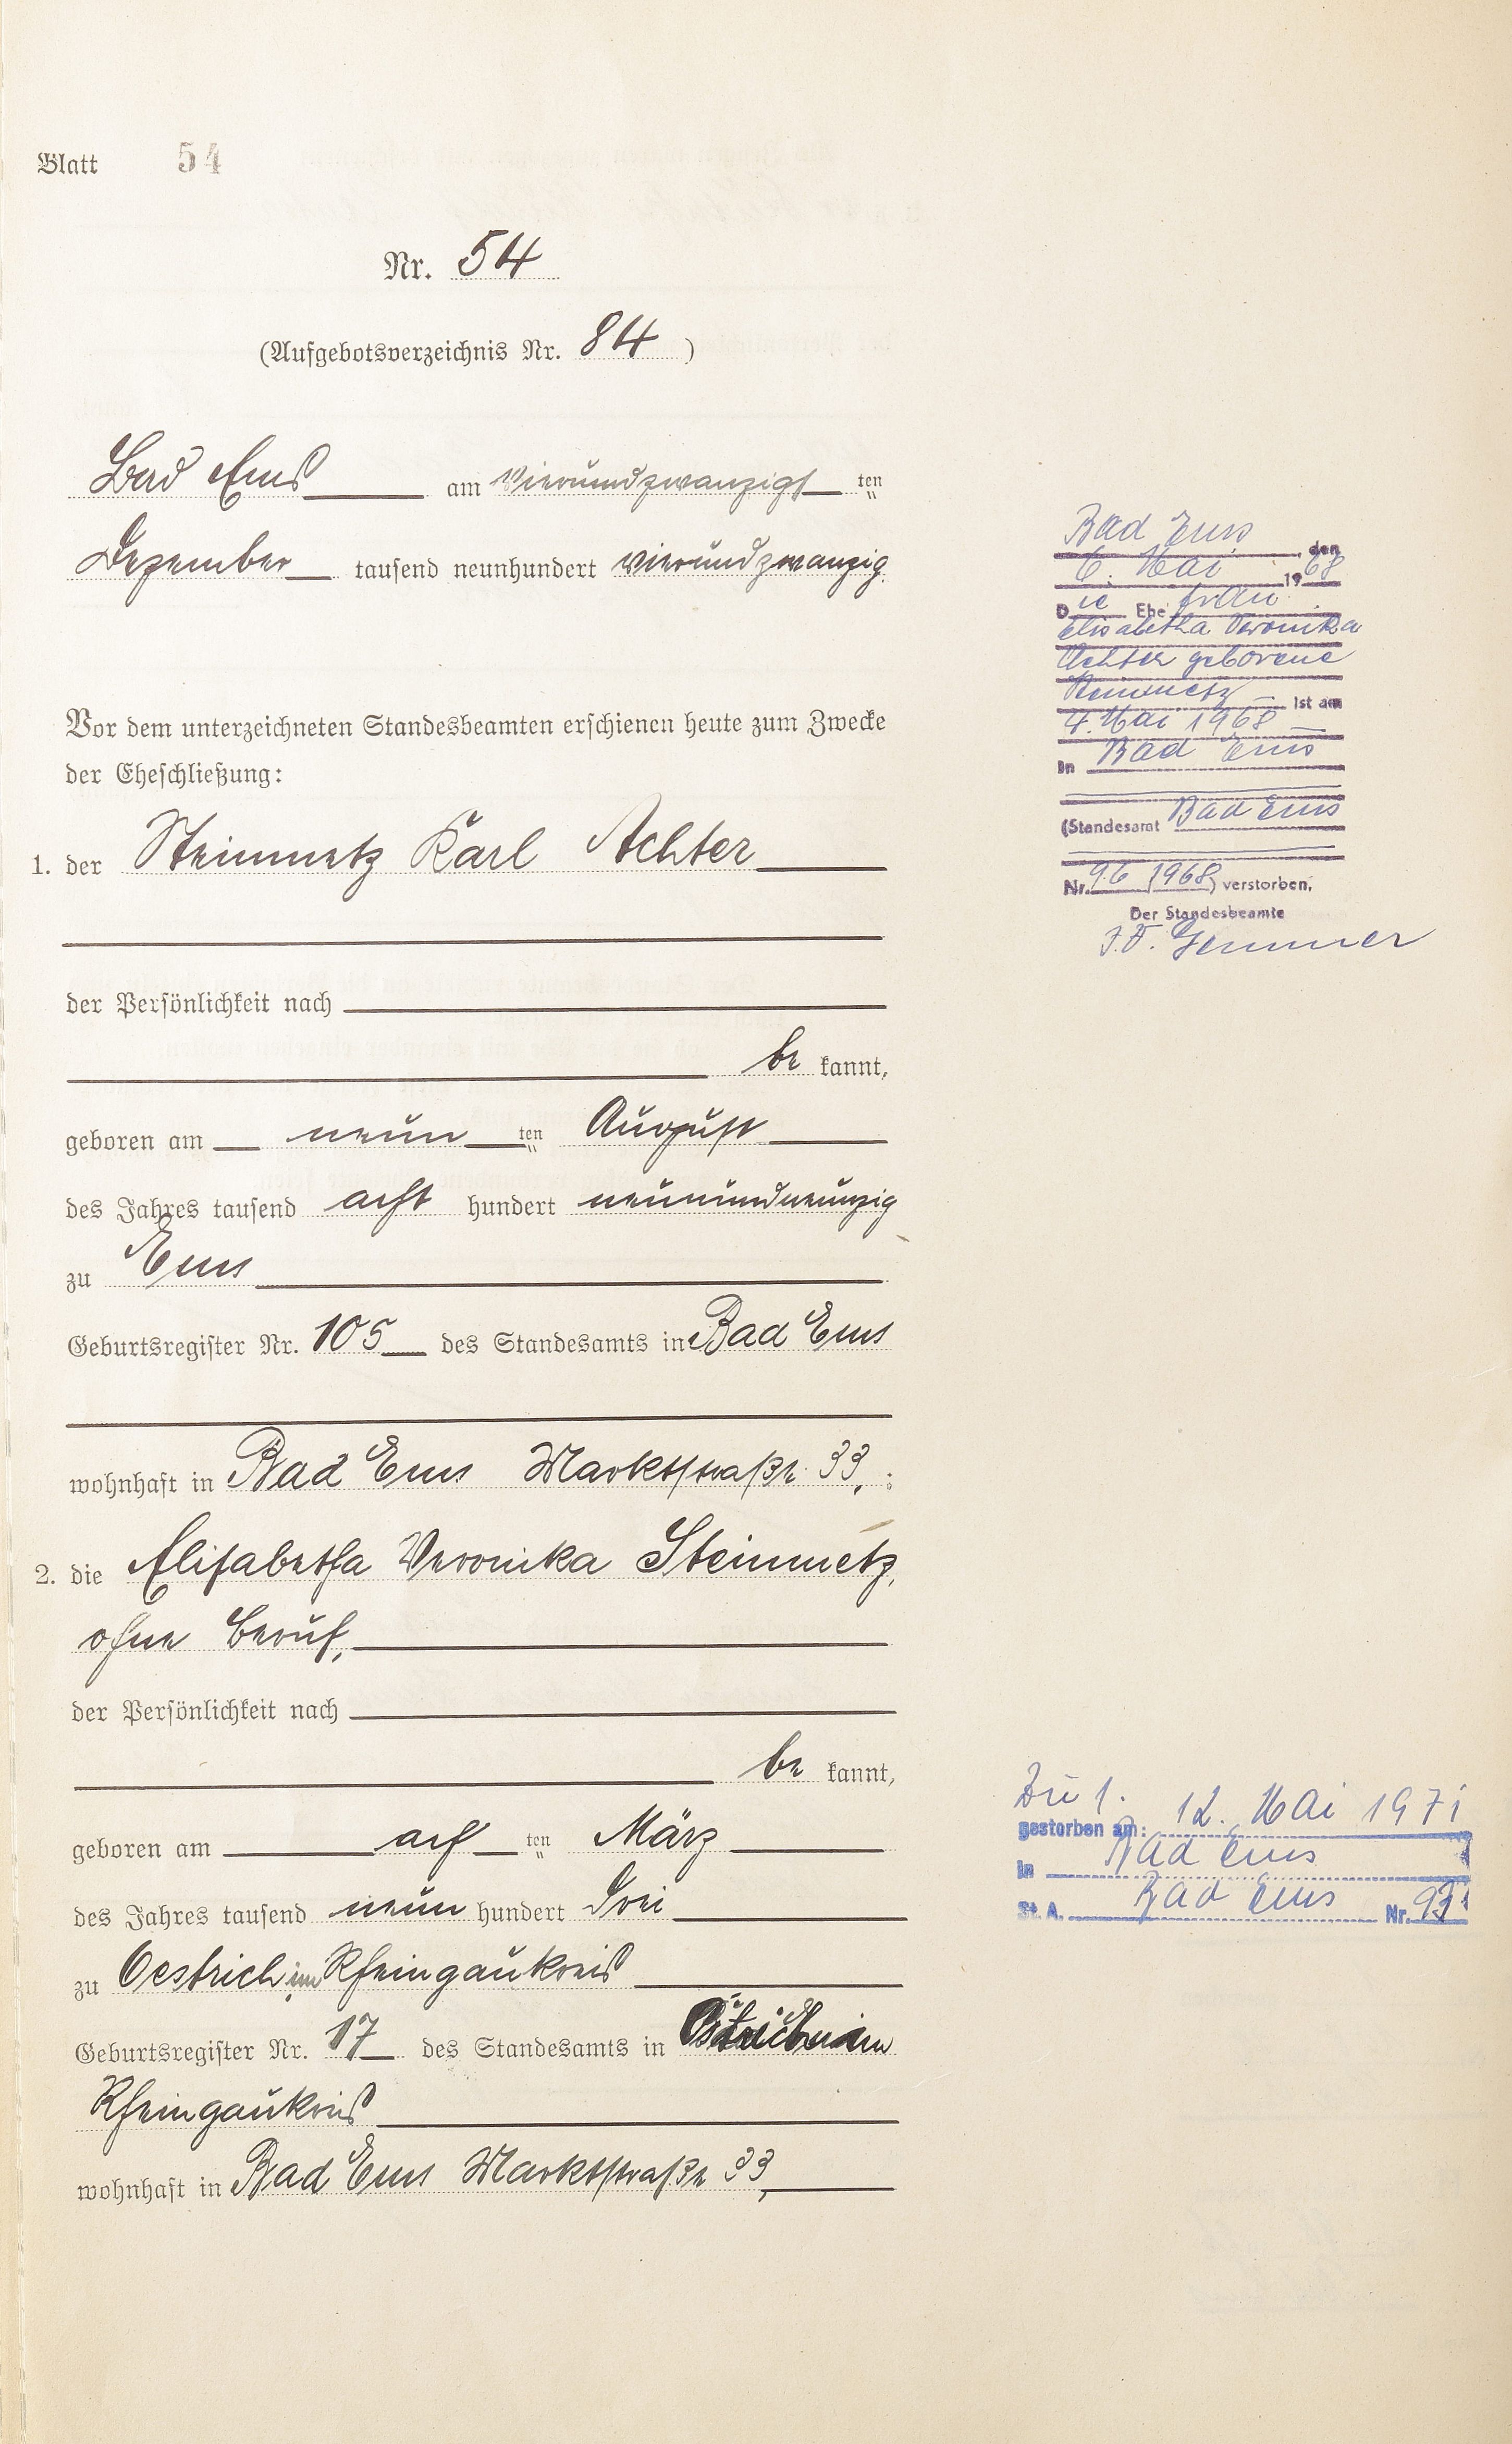 Blatt 54
Nr. 54
(Aufgebotsverzeichnis Nr. 84)
Bad Ems am vierundzwanzigsten
Dezember tausend neunhundert vierundzwanzig
Vor dem unterzeichneten Standesbeamten erschienen heute zum Zwecke
der Eheschließung:
1. der Steinmetz Karl Achter
der Persönlichkeit nach
be kannt,
geboren am neun ten August
des Jahres tausend acht hundert neunundneunzig
zu Ems
Geburtsregister Nr. 105 des Standesamts in Bad Ems
wohnhaft in Bad Ems Marktstraße 33, ;
2. die Elisabetha Veronika Steinmetz,
ohne Beruf,
der Persönlichkeit nach
be kannt,
geboren am ach ten März
des Jahres tausend neun hundert drei
zu Oestrich im Rheingaukreis
Geburtsregister Nr. 17 des Standesamts in Östrich im
Rheingaukreis
wohnhaft in Bad Ems Marktstraße 33,
Bad Ems, den
6. Mai 1968
Die Ehefrau
Elisabetha Veronika
Achter geborene
Steinmetz ist am
4. Mai 1968
in Bad Ems
(Standesamt Bad Ems
Nr. 96/1968) verstorben.
Der Standesbeamte
I.V. Gemmer
Zu 1.
gestorben am: 12. Mai 1971
in Bad Ems
St. A. Bad Ems Nr. 93